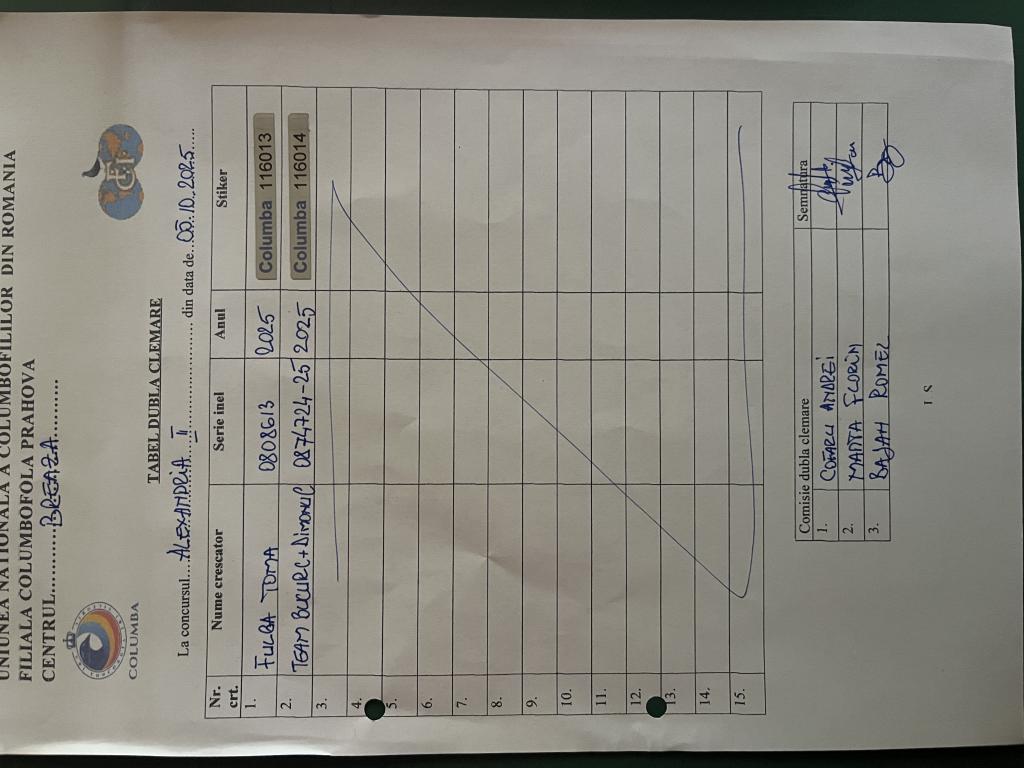 UNIUNEA NATIONALA A COLUMBOFILILOR DIN ROMANIA
FILIALA COLUMBOFOLA PRAHOVA
CENTRUL............BREAZA..........
COLUMBA
FCI
TABEL DUBLA CLEMARE
La concursul....ALEXANDRIA....II............................ din data de...05.10.2025.....
Nr. crt. Nume crescator Serie inel Anul Stiker
1. FULGA TOMA 0808613 2025 Columba 116013
2. TEAM BUCURC+Dimonul 0874724-25 2025 Columba 116014
3.
4.
5.
6.
7.
8.
9.
10.
11.
12.
13.
14.
15.
Comisie dubla clemare Semnatura
1. COFARU ANDREI
2. MANTA FLORIN
3. BAJAN ROMEL
L S